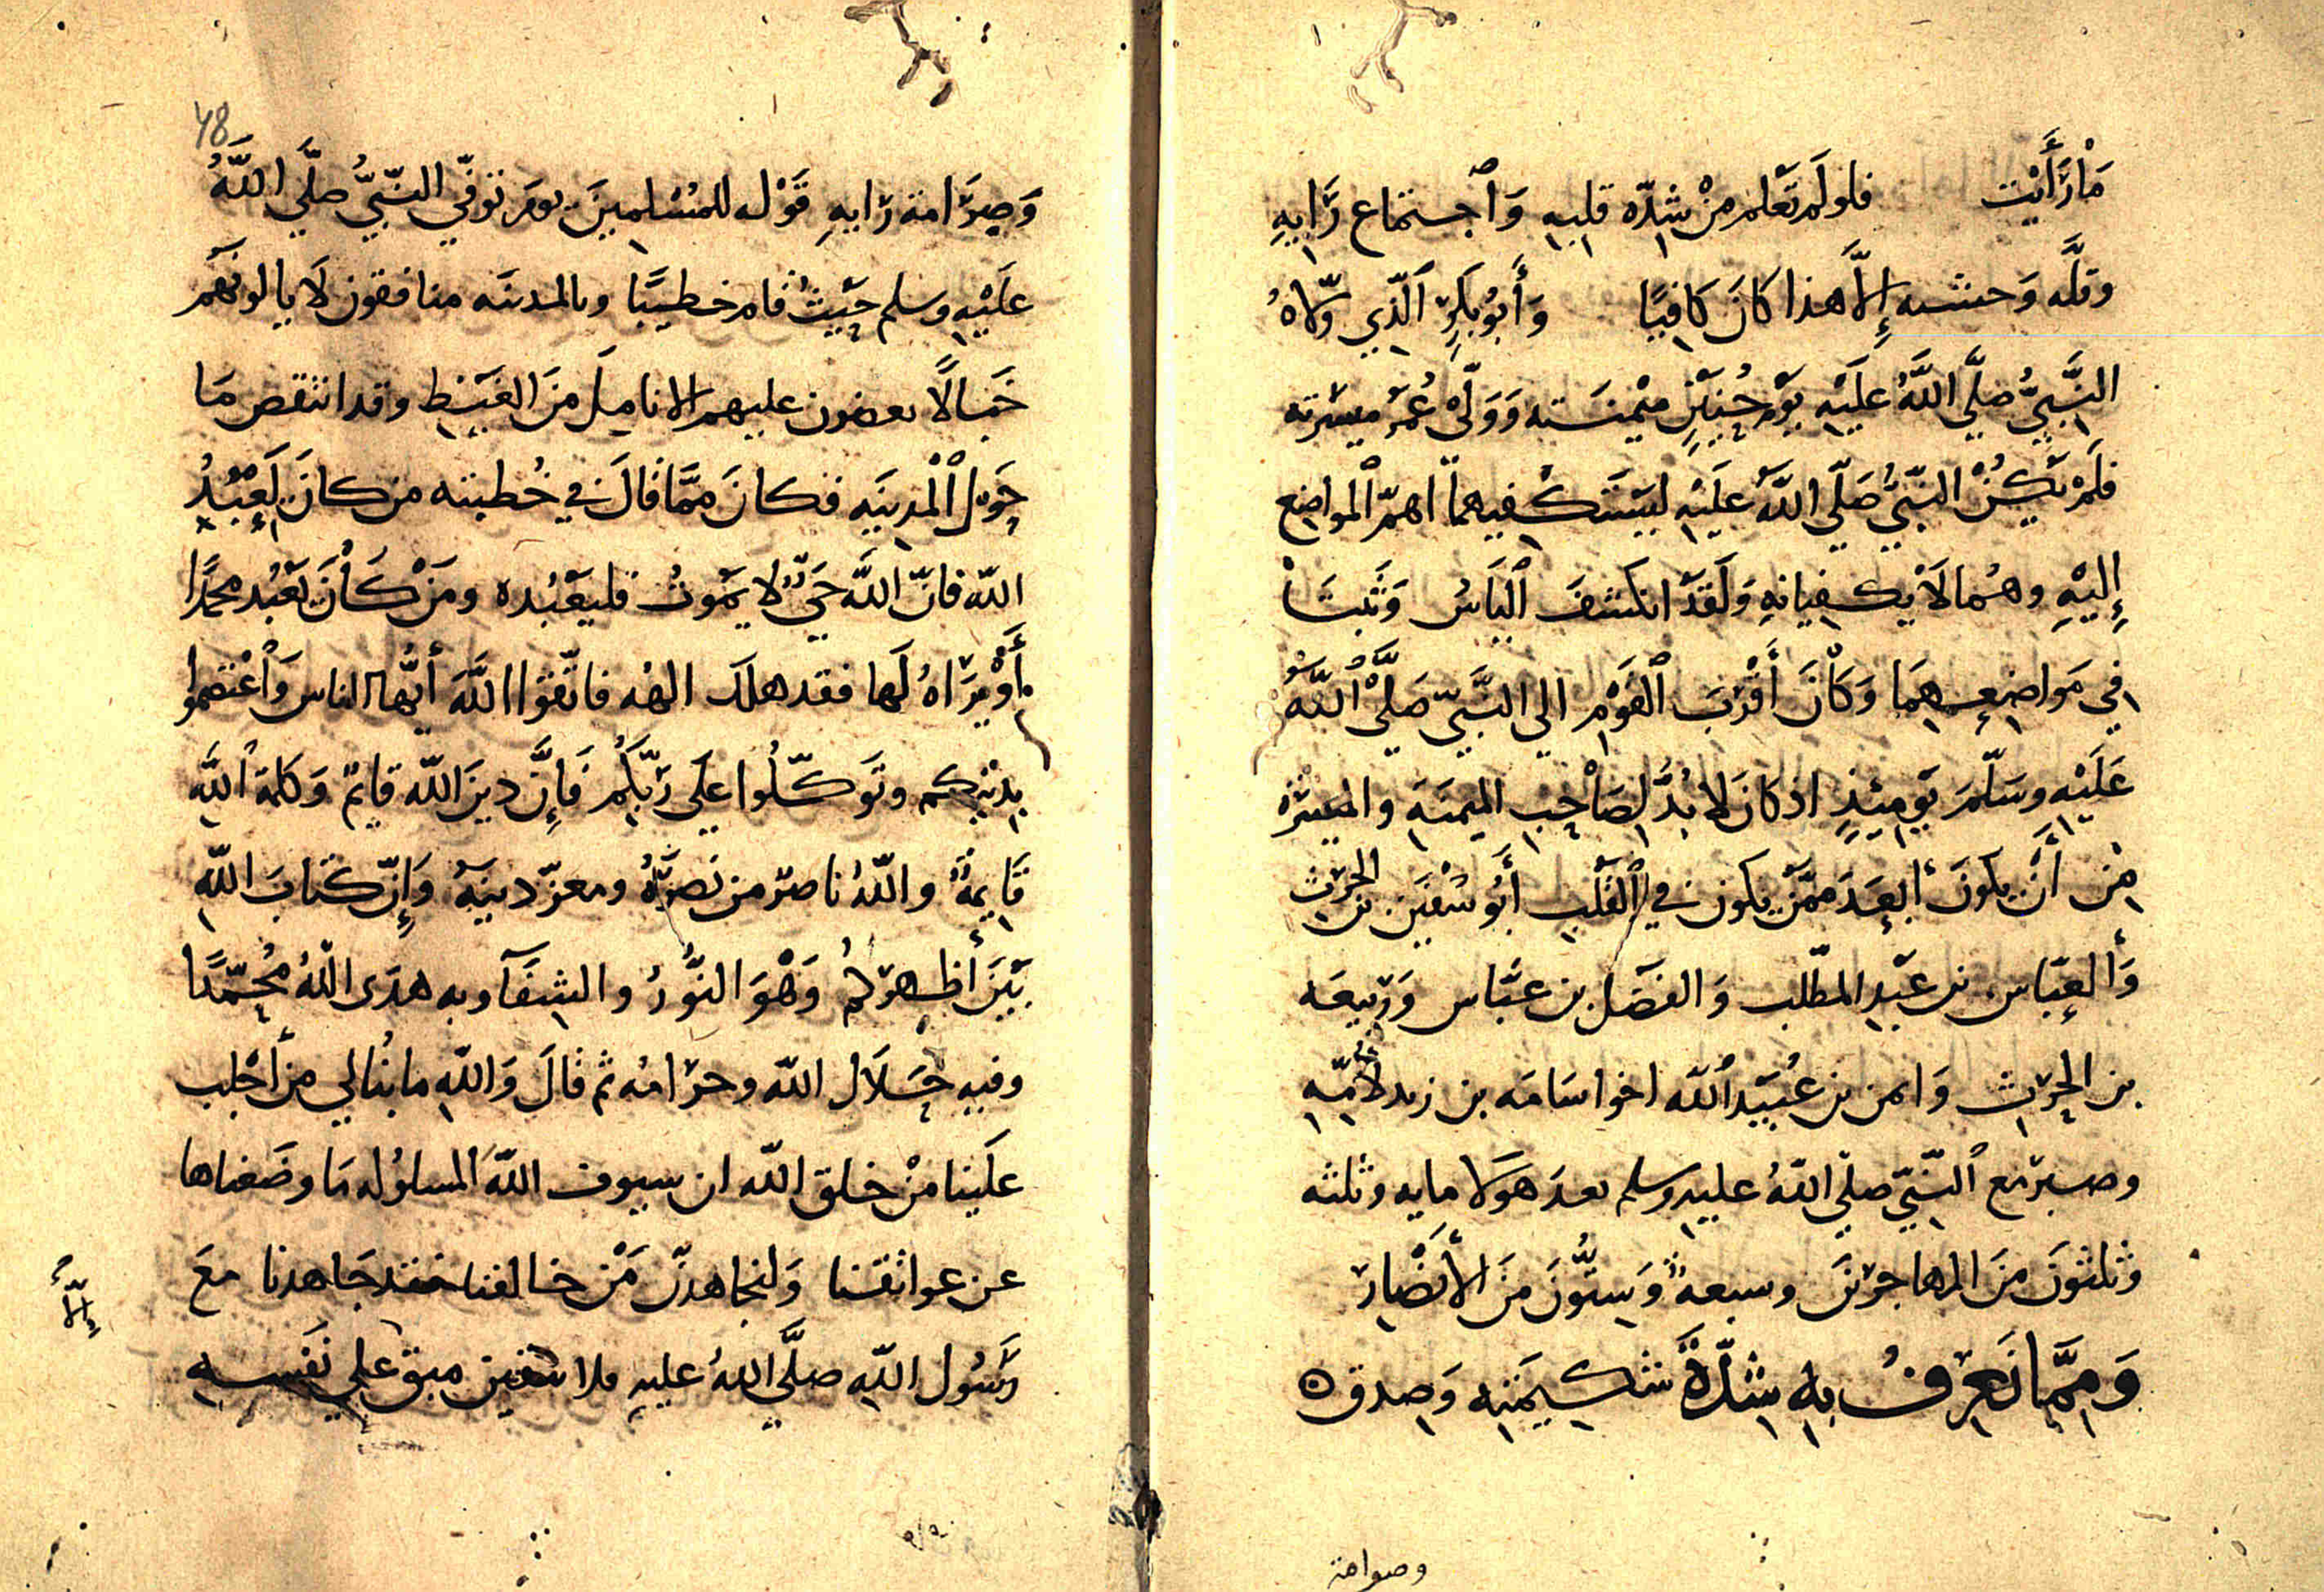 مَا رَأَيْت فلو لَم تَعْلم مِنْ شِدّه قلبِهِ وَٱجْتماع رَايِهِ
وقلَّه وَحشته إِلَّا هذا كَانَ كَافيًا وَأَبُو بَكرٍ الَّذِي وَلّاهُ
النَّبيُّ صلَّي اللَّهُ عَلَيْهِ يَوْمَ حُنَيْنٍ مَيْمَنَته وَوَلّي عُمَرَ ميْسَرته
فَلَمْ يَكُنْ النَّبيُّ صَلَّي اللَّهُ عَلَيْهِ ليَسْتَكْفيهما اهمّ المواضِع
إِليْهِ وهُمَا لَا يَكفيانِهِ وَلَقَدْ انكشفَ ٱلبَاسُ وَثَبتَا
فِي مَواضِعِهِمَا وَكَانَ أَقْرَبَ ٱلقَوْمِ الي النَّبيّ صَلَّي ٱللَّهُ
عَلَيْهِ وسَلَّمَ يَوْمِئِذٍ اذ كانَ لا بُدَّ لِصَاحِبِ الميمنَهِ والميْسَرَة
مِن أَنْ يكونَ أبعَدَ ممَّنْ يكون في ٱلقَلْبِ أَبُو سُفْيَن بن الحرث
وَألعَبّاس بن عَبْدِ المطّلب وَالفَضْل بن عبَّاس وَرَبِيعَه
بن الحرِث وَايمن بن عُبَيْد ٱللَّه اخو اسَامَه بن زيد لأُمّهِ
وصبر مَع ٱلنَّبيّ صلّي اللّهُ عليهِ وسلم بعدَ هَوْلا مايه وثلثه
وثلثونَ مِنَ المهاجرينَ وسبعهٌ وَستُّونَ مِنَ الأَنْصَار
وَمِمَّا نَعْرِفُ بِهِ شِدّةَ شَكيمَتِهِ وَصِدق ه
وصرامة
48
وَصِرَامة رَايهِ قَوْله للمُسْلمينَ يومَ توفّي النّبيُّ صلَّي اللَّهُ
عَلَيْهِ وسلم حَيْثُ قامَ خطيبًا وبالمدينَه منافقون لَا يالونَهُم
خَبالًا يعضون عليهم الاناملَ مِنَ الغَيْظِ وقد انتقص مَا
حَوْل ٱلْمدينَهِ فكانَ ممَّا قالَ في خُطبته من كانَ يَعْبُدُ
اللّه فانّ اللَّه حَيٌّ لا يَمُوتُ فليَعْبُده ومَنْ كَانَ يَعْبُد محمدًا
أَوْ يَرَاهُ لَها فقد هلَك الهُه فاتَّقوا اللَّهَ أَيُّها الناس وَٱعْتصِمُوا
بِدِيْنِكم وتَوَكَّلُوا علَي رَبِّكُمْ فَإِنَّ دِينَ اللّه قايِمٌ وَكلمة اللَّهِ
قَايِمةٌ واللّهُ ناصر من نَصرَهُ ومعزّ دينِهِ وَإِنّ كتابَ اللّهِ
بَيْنَ أَظهركُمْ وَهْوَ النُّورُ والشِفَآ وبه هدَى اللّهُ مُحَمَّدًا
وفيهِ حَلَال اللّه وحرامُه ثم قَالَ وَاللّهِ ما نُبالي من أَجْلب
علَينا مِنْ خلق اللّه ان سيوف اللَّه المسلولُه مَا وضَعناها
عن عواتقنا وَلنجاهدنّ مَنْ خالفنا فقد جَاهدنا معَ
رَسُول اللّهِ صلَّي اللهُ عليهِ فلا مبق علي نَفسه
إِلّا